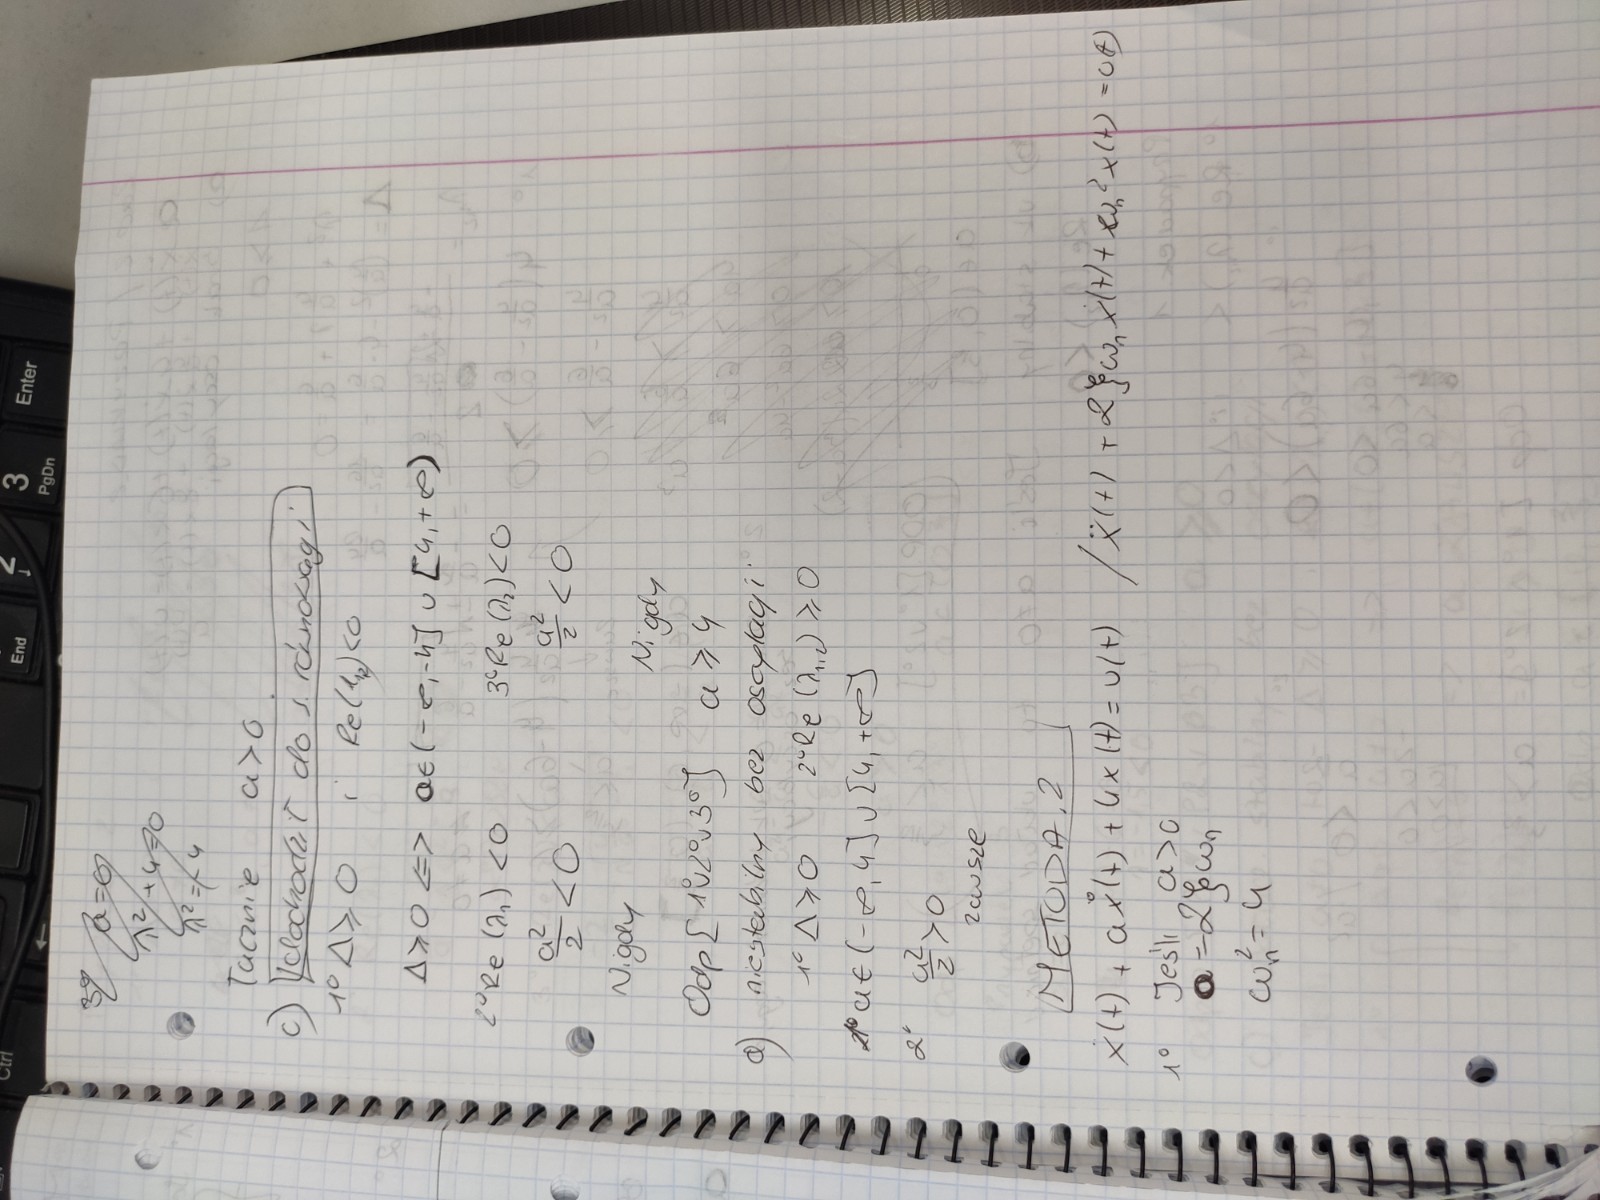 a=0
λ²+4=0
λ²=-4
Łącznie a>0
c) dochodzić do s. równowagi
1° Δ⩾0 i Re(λ₁,₂)<0
Δ⩾0 ⟺ a∈(-∞,-4] ∪ [4,+∞)
2° Re(λ₁)<0 3° Re(λ₂)<0
a²/2 <0 a²/2 <0
Nigdy Nigdy
Odp [1°∪2°∪3°] a⩾4
d) niestabilny bez oscylacji:
1° Δ⩾0 2° Re(λ₁,₂)⩾0
1° a∈(-∞,4]∪[4,+∞]
2° a²/2 ⩾0
zawsze
METODA.2
ẍ(t) + aẋ(t) + 4x(t) = u(t) / ẍ(t) + 2ξωₙẋ(t) + ωₙ²x(t) = u(t)
1° Jeśli a>0
a=2ξωₙ
ωₙ²=4
Enter
3
PgDn
2
End
Ctrl